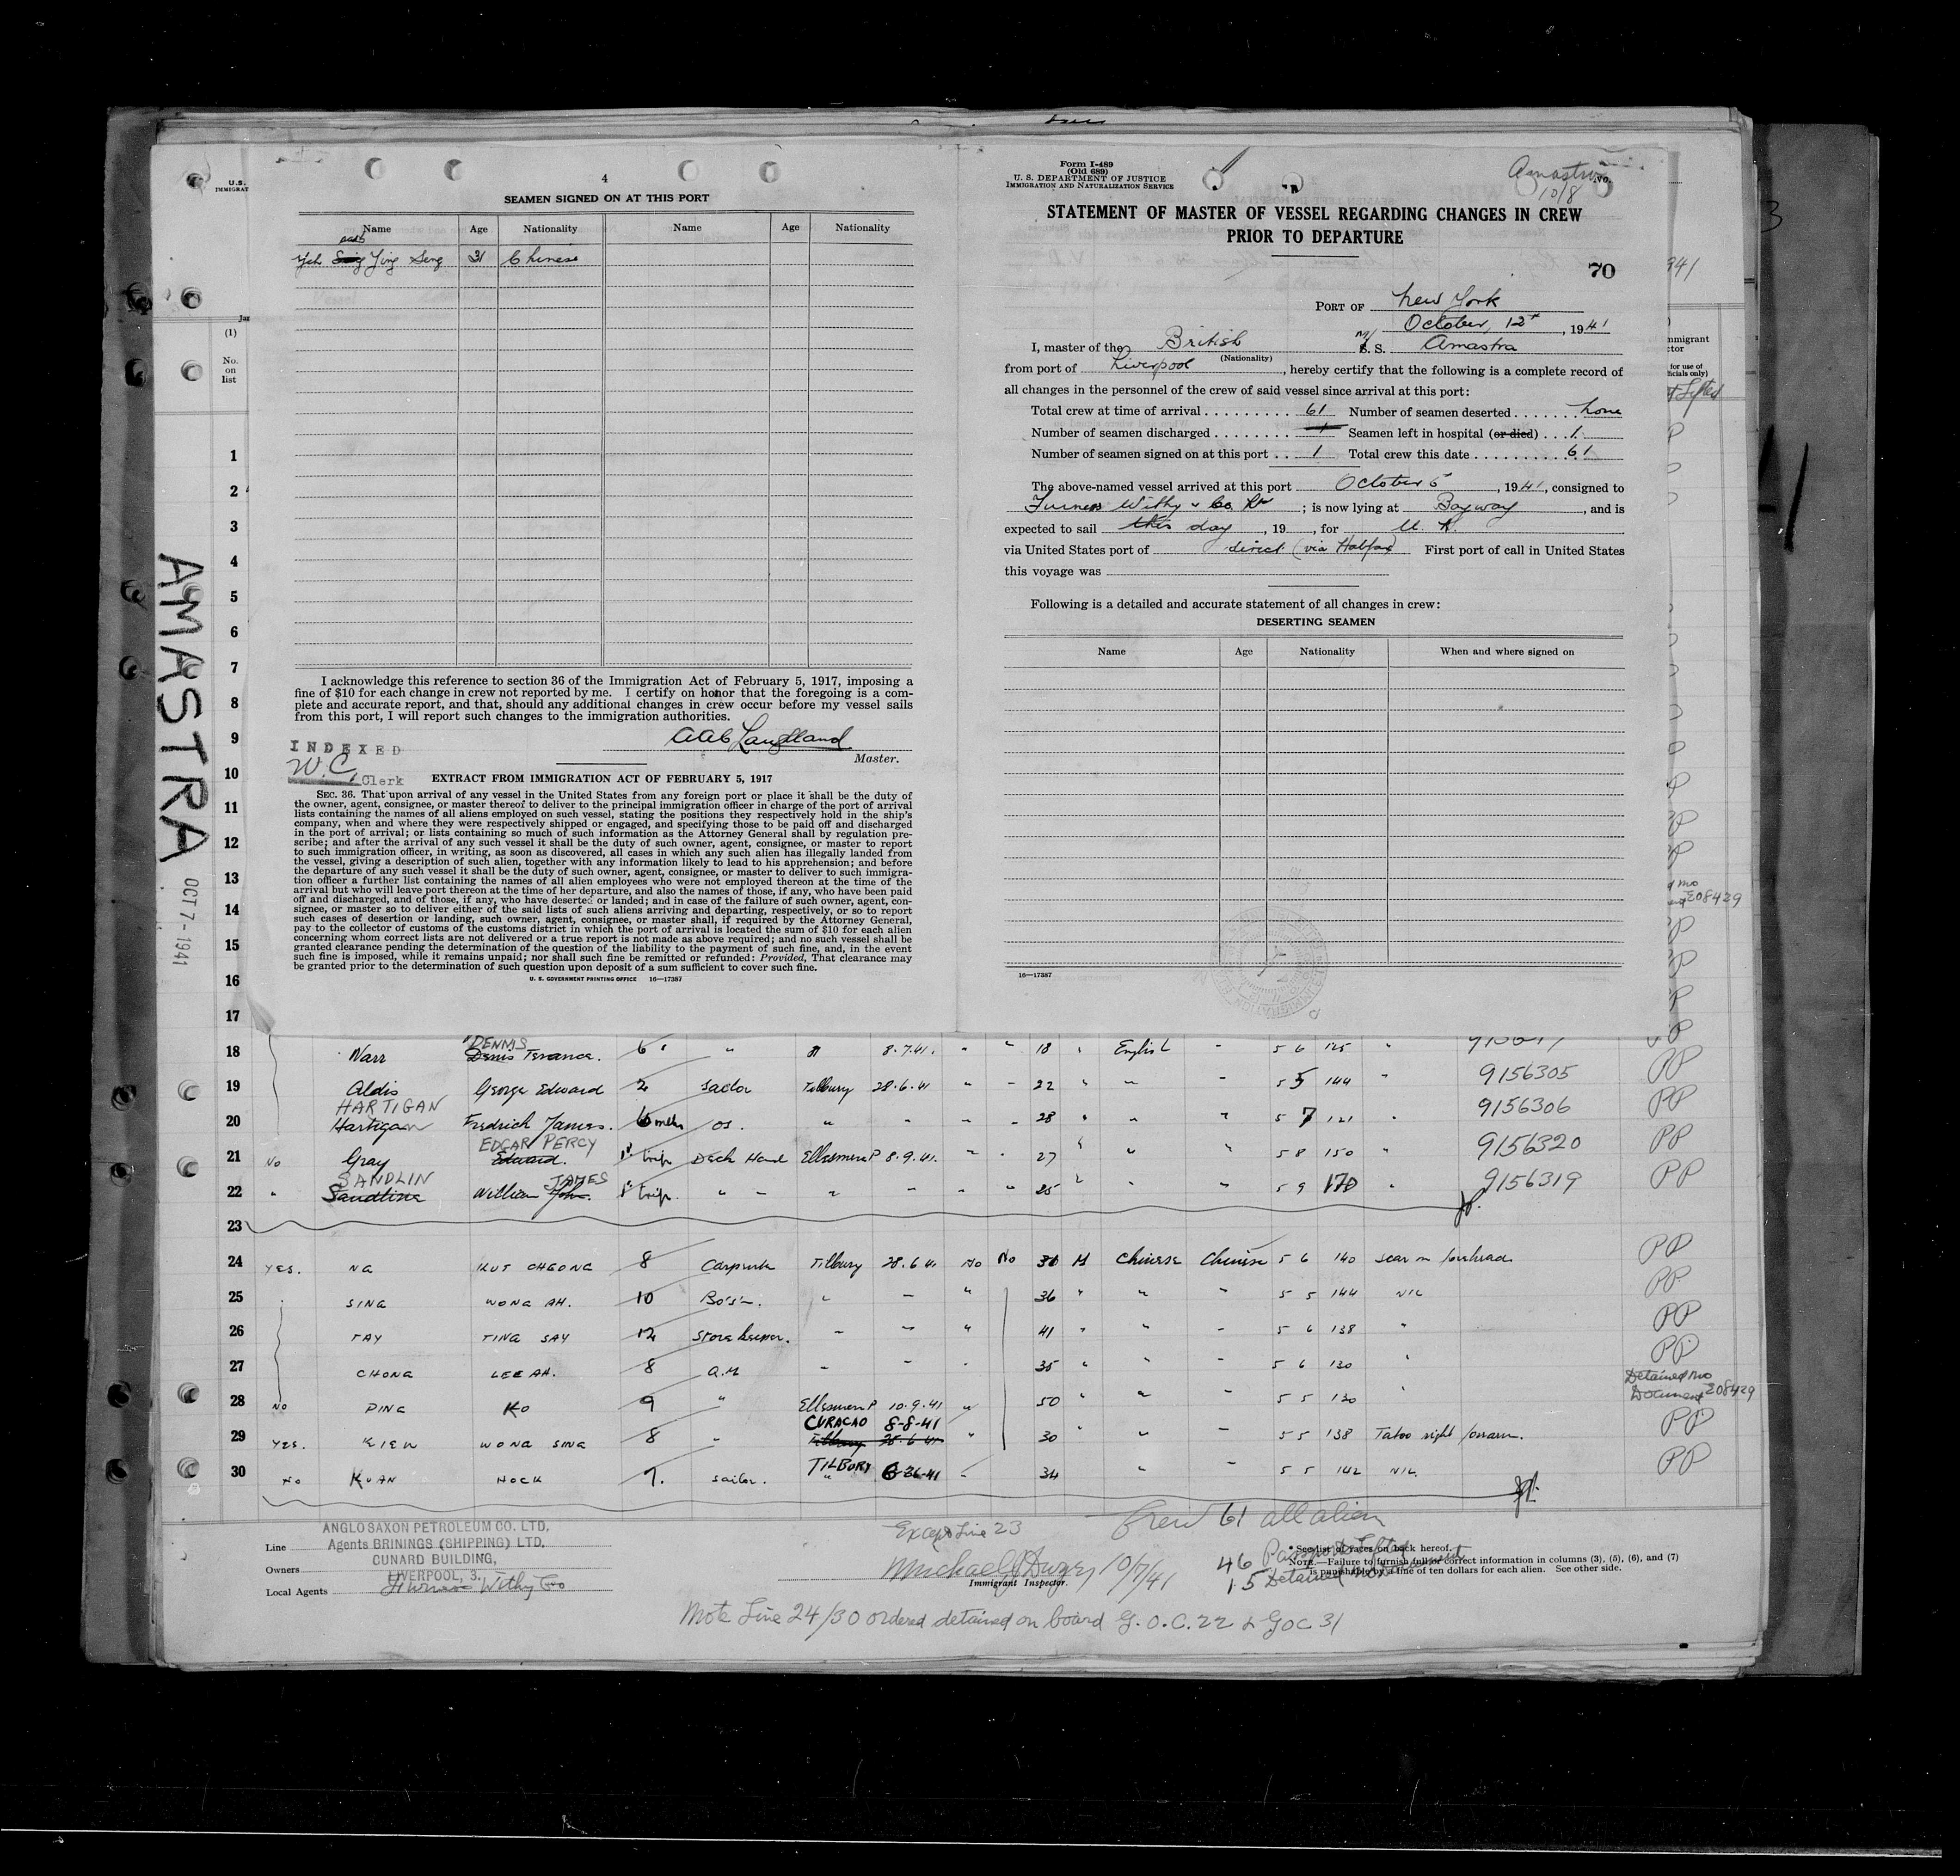 AMASTRA OCT 7 - 1941
U.S.
IMMIGRAT
(1)
No.
on
list
1
2
3
4
5
6
7
8
9
10
11
12
13
14
15
16
17
4
SEAMEN SIGNED ON AT THIS PORT
Name Age Nationality Name Age Nationality
Yeh Ying Seng 31 Chinese
I acknowledge this reference to section 36 of the Immigration Act of February 5, 1917, imposing a
fine of $10 for each change in crew not reported by me. I certify on honor that the foregoing is a com-
plete and accurate report, and that, should any additional changes in crew occur before my vessel sails
from this port, I will report such changes to the immigration authorities.
Master.
INDEXED
W.C. Clerk
EXTRACT FROM IMMIGRATION ACT OF FEBRUARY 5, 1917
SEC. 36. That upon arrival of any vessel in the United States from any foreign port or place it shall be the duty of
the owner, agent, consignee, or master thereof to deliver to the principal immigration officer in charge of the port of arrival
lists containing the names of all aliens employed on such vessel, stating the positions they respectively hold in the ship's
company, when and where they were respectively shipped or engaged, and specifying those to be paid off and discharged
in the port of arrival; or lists containing so much of such information as the Attorney General shall by regulation pre-
scribe; and after the arrival of any such vessel it shall be the duty of such owner, agent, consignee, or master to report
to such immigration officer, in writing, as soon as discovered, all cases in which any such alien has illegally landed from
the vessel, giving a description of such alien, together with any information likely to lead to his apprehension; and before
the departure of any such vessel it shall be the duty of such owner, agent, consignee, or master to deliver to such immigra-
tion officer a further list containing the names of all alien employees who were not employed thereon at the time of the
arrival but who will leave port thereon at the time of her departure, and also the names of those, if any, who have been paid
off and discharged, and of those, if any, who have deserted or landed; and in case of the failure of such owner, agent, con-
signee, or master so to deliver either of the said lists of such aliens arriving and departing, respectively, or so to report
such cases of desertion or landing, such owner, agent, consignee, or master shall, if required by the Attorney General,
pay to the collector of customs of the customs district in which the port of arrival is located the sum of $10 for each alien
concerning whom correct lists are not delivered or a true report is not made as above required; and no such vessel shall be
granted clearance pending the determination of the question of the liability to the payment of such fine, and, in the event
such fine is imposed, while it remains unpaid; nor shall such fine be remitted or refunded: Provided, That clearance may
be granted prior to the determination of such question upon deposit of a sum sufficient to cover such fine.
U. S. GOVERNMENT PRINTING OFFICE 16—17387
Form I-489
(Old 689)
U. S. DEPARTMENT OF JUSTICE
IMMIGRATION AND NATURALIZATION SERVICE
Amastra
10/8
STATEMENT OF MASTER OF VESSEL REGARDING CHANGES IN CREW
PRIOR TO DEPARTURE
70
PORT OF New York
October, 12, 1941
I, master of the British M/S. S. Amastra
(Nationality)
from port of Liverpool, hereby certify that the following is a complete record of
all changes in the personnel of the crew of said vessel since arrival at this port:
Total crew at time of arrival 61 Number of seamen deserted none
Number of seamen discharged Seamen left in hospital (or died) 1
Number of seamen signed on at this port 1 Total crew this date 61
The above-named vessel arrived at this port October 5, 1941, consigned to
Furness Withy & Co. ; is now lying at Bayway, and is
expected to sail this day, 19, for U. K.
via United States port of direct (via Halifax) First port of call in United States
this voyage was
Following is a detailed and accurate statement of all changes in crew:
DESERTING SEAMEN
Name Age Nationality When and where signed on
16—17387
18 Narr DENNIS Denis Terance. 6 " 8.7.41. " " 18 " English " 5 6 125 "
19 Aldis George Edward 2 Sailor Tilbury 28.6.41 " " 22 " " " 5 5 144 " 9156305 PP
20 HARTIGAN Hartigan Fredrick James. 6 mths OS. " " " " 28 " " " 5 7 121 " 9156306 PP
21 No Gray EDGAR PERCY Edward. 1st trip Deck Hand Ellesmere P 8.9.41. " " 27 " " " 5 8 150 " 9156320 PP
22 " SANDLIN William JAMES John. 1st trip. " " " " " " 25 " " " 5 9 170 " 9156319 PP
23
24 YES. NG KUT CHEONG 8 Carpenter Tilbury 28.6.41 No No 31 M Chinese Chinese 5 6 140 scar on forehead PP
25 SING WONG AH. 10 Bo's'n. " " " 36 " " " 5 5 144 NIL PP
26 TAY TING SAY 12 Storekeeper. " " " 41 " " " 5 6 138 " PP
27 CHONG LEE AH. 8 Q.M " " " 35 " " " 5 6 130 " PP
28 NO PING KO 9 " Ellesmere P 10.9.41 " 50 " " " 5 5 130 " Detained no Document 208429
29 YES. KIEW WONG SING 8 " CURACAO 8-8-41 Tilbury 28.6.41 " 30 " " 5 5 138 Tatoo right forearm. PP
30 No KUAN HOCK 7. Sailor. TILBURY 6-26-41 " 34 " " 5 5 142 NIL. PP
Line ANGLO SAXON PETROLEUM CO. LTD,
Agents BRININGS (SHIPPING) LTD,
Owners CUNARD BUILDING,
LIVERPOOL, 3.
Local Agents Furness Withy Co
Except Line 23
Crew 61 all alien
10/7/41
Immigrant Inspector.
46 Passports Lifted
15 Detained no Document
* See list of races on back hereof.
NOTE.—Failure to furnish full or correct information in columns (3), (5), (6), and (7)
is punishable by a fine of ten dollars for each alien. See other side.
Note Line 24/30 ordered detained on board G.O.C. 22 & GOC 31